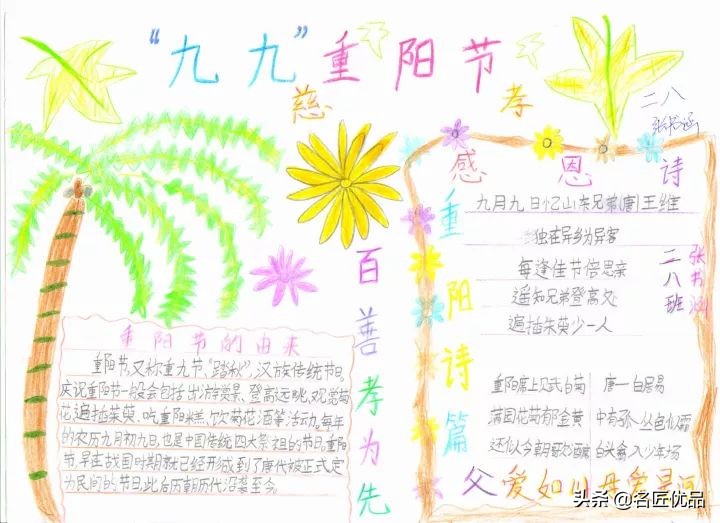 “九九”重阳节
慈 孝
二八
张书涵
感恩诗
重阳诗篇
九月九日忆山东兄弟(唐)王维
独在异乡为异客
每逢佳节倍思亲
遥知兄弟登高处
遍插茱萸少一人
二八班
张书涵
重阳席上赋白菊 唐—白居易
满园花菊郁金黄 中有孤丛色似霜
还似今朝歌酒席 白头翁入少年场
百善孝为先
重阳节的由来
重阳节,又称重九节、“踏秋”,汉族传统节日。
庆祝重阳节一般会包括出游赏景、登高远眺、观赏菊
花遍插茱萸、吃重阳糕、饮菊花酒等活动。每年
的农历九月初九日,也是中国传统四大祭祖的节日。重阳
节,早在战国时期就已经形成,到了唐代被正式定
为民间的节日,此后历朝历代沿袭至今。
父爱如山母爱
头条 @名匠优品